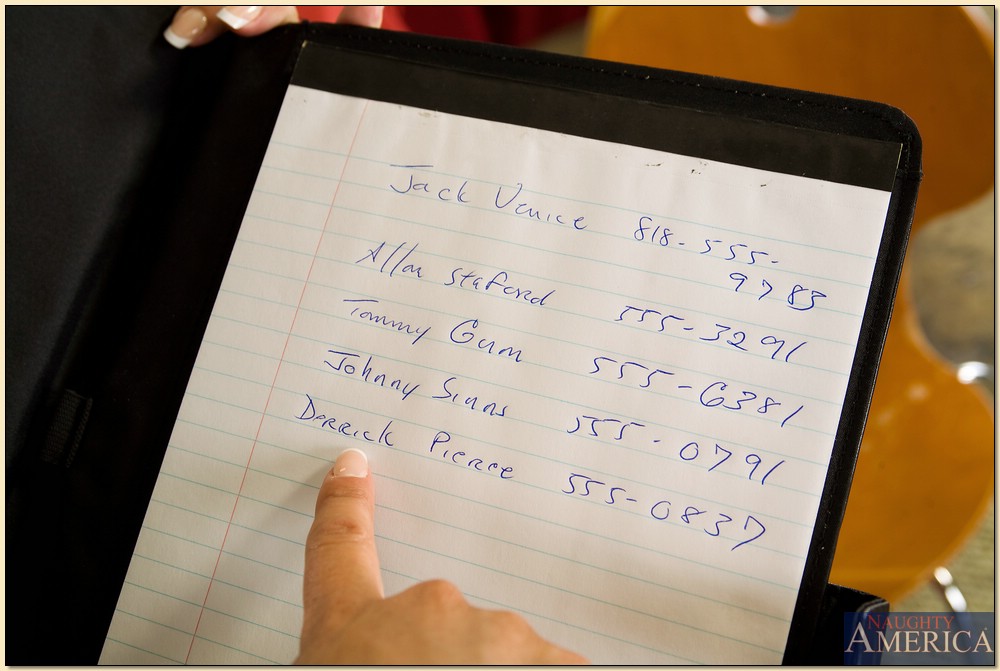 Jack Venice 818-555-
9783
Allan Staford 555-3291
Tommy Gum 555-6381
Johnny Sinns 555-0791
Derrick Pierce 555-0837
NAUGHTY
AMERICA